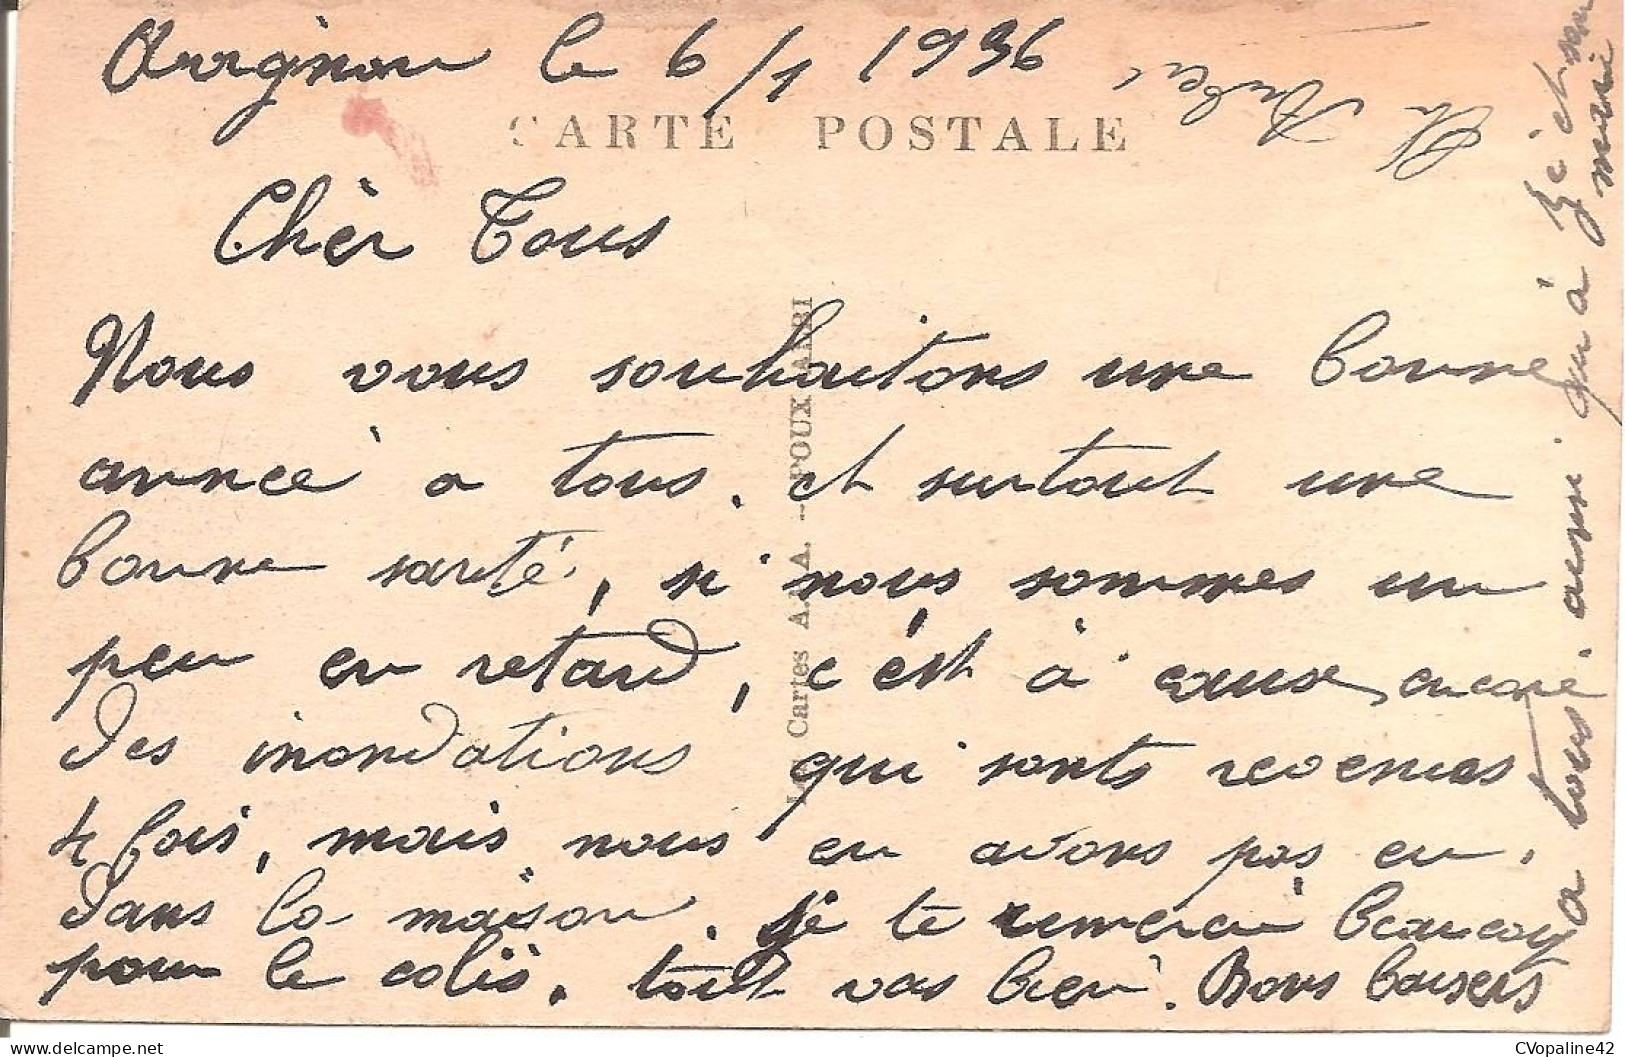 Avignon le 6/1 1936
CARTE POSTALE
Chèr Tous
Nous vous souhaitons une bonne
année a tous. et surtout une
bonne santé, si nous sommes un
peu en retard, c'est à cause encore
des inondations qui sonts revenues
4 fois, mais nous en avons pas eu.
dans la maison. je te remercie beaucoup
pour le colis. tout vas bien. Bons baisers
a tous. aussi qu'a
mari
Les Cartes
POUX
CVopaline42